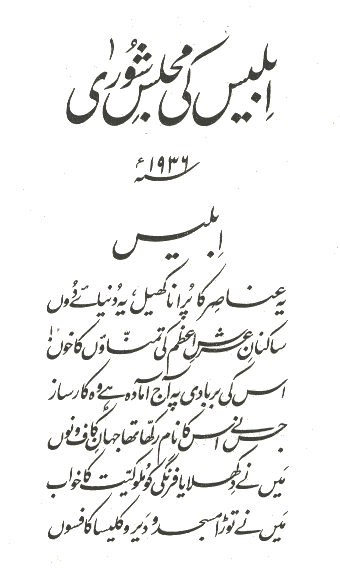 ابلیس کی مجلسِ شوریٰ
۱۹۳۶ء
اِبلیس
یہ عناصِر کا پُرانا کھیل، یہ دُنیائے دُوں
ساکنانِ عرشِ اعظم کی تمنّاؤں کا خوں!
اس کی بربادی پہ آج آمادہ ہے وہ کارساز
جس نے اس کا نام رکھّا تھا جہانِ کاف و نوں
مَیں نے دِکھلایا فرنگی کو مُلوکیّت کا خواب
مَیں نے توڑا مسجد و دَیر و کلیسا کا فسوں